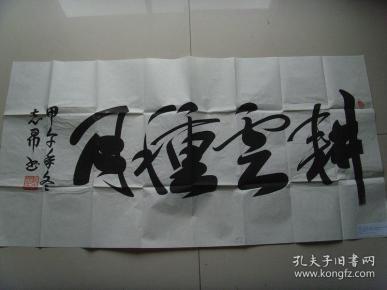 耕云種月
甲午年冬
志昂书
孔夫子旧书网
www.kongfz.com